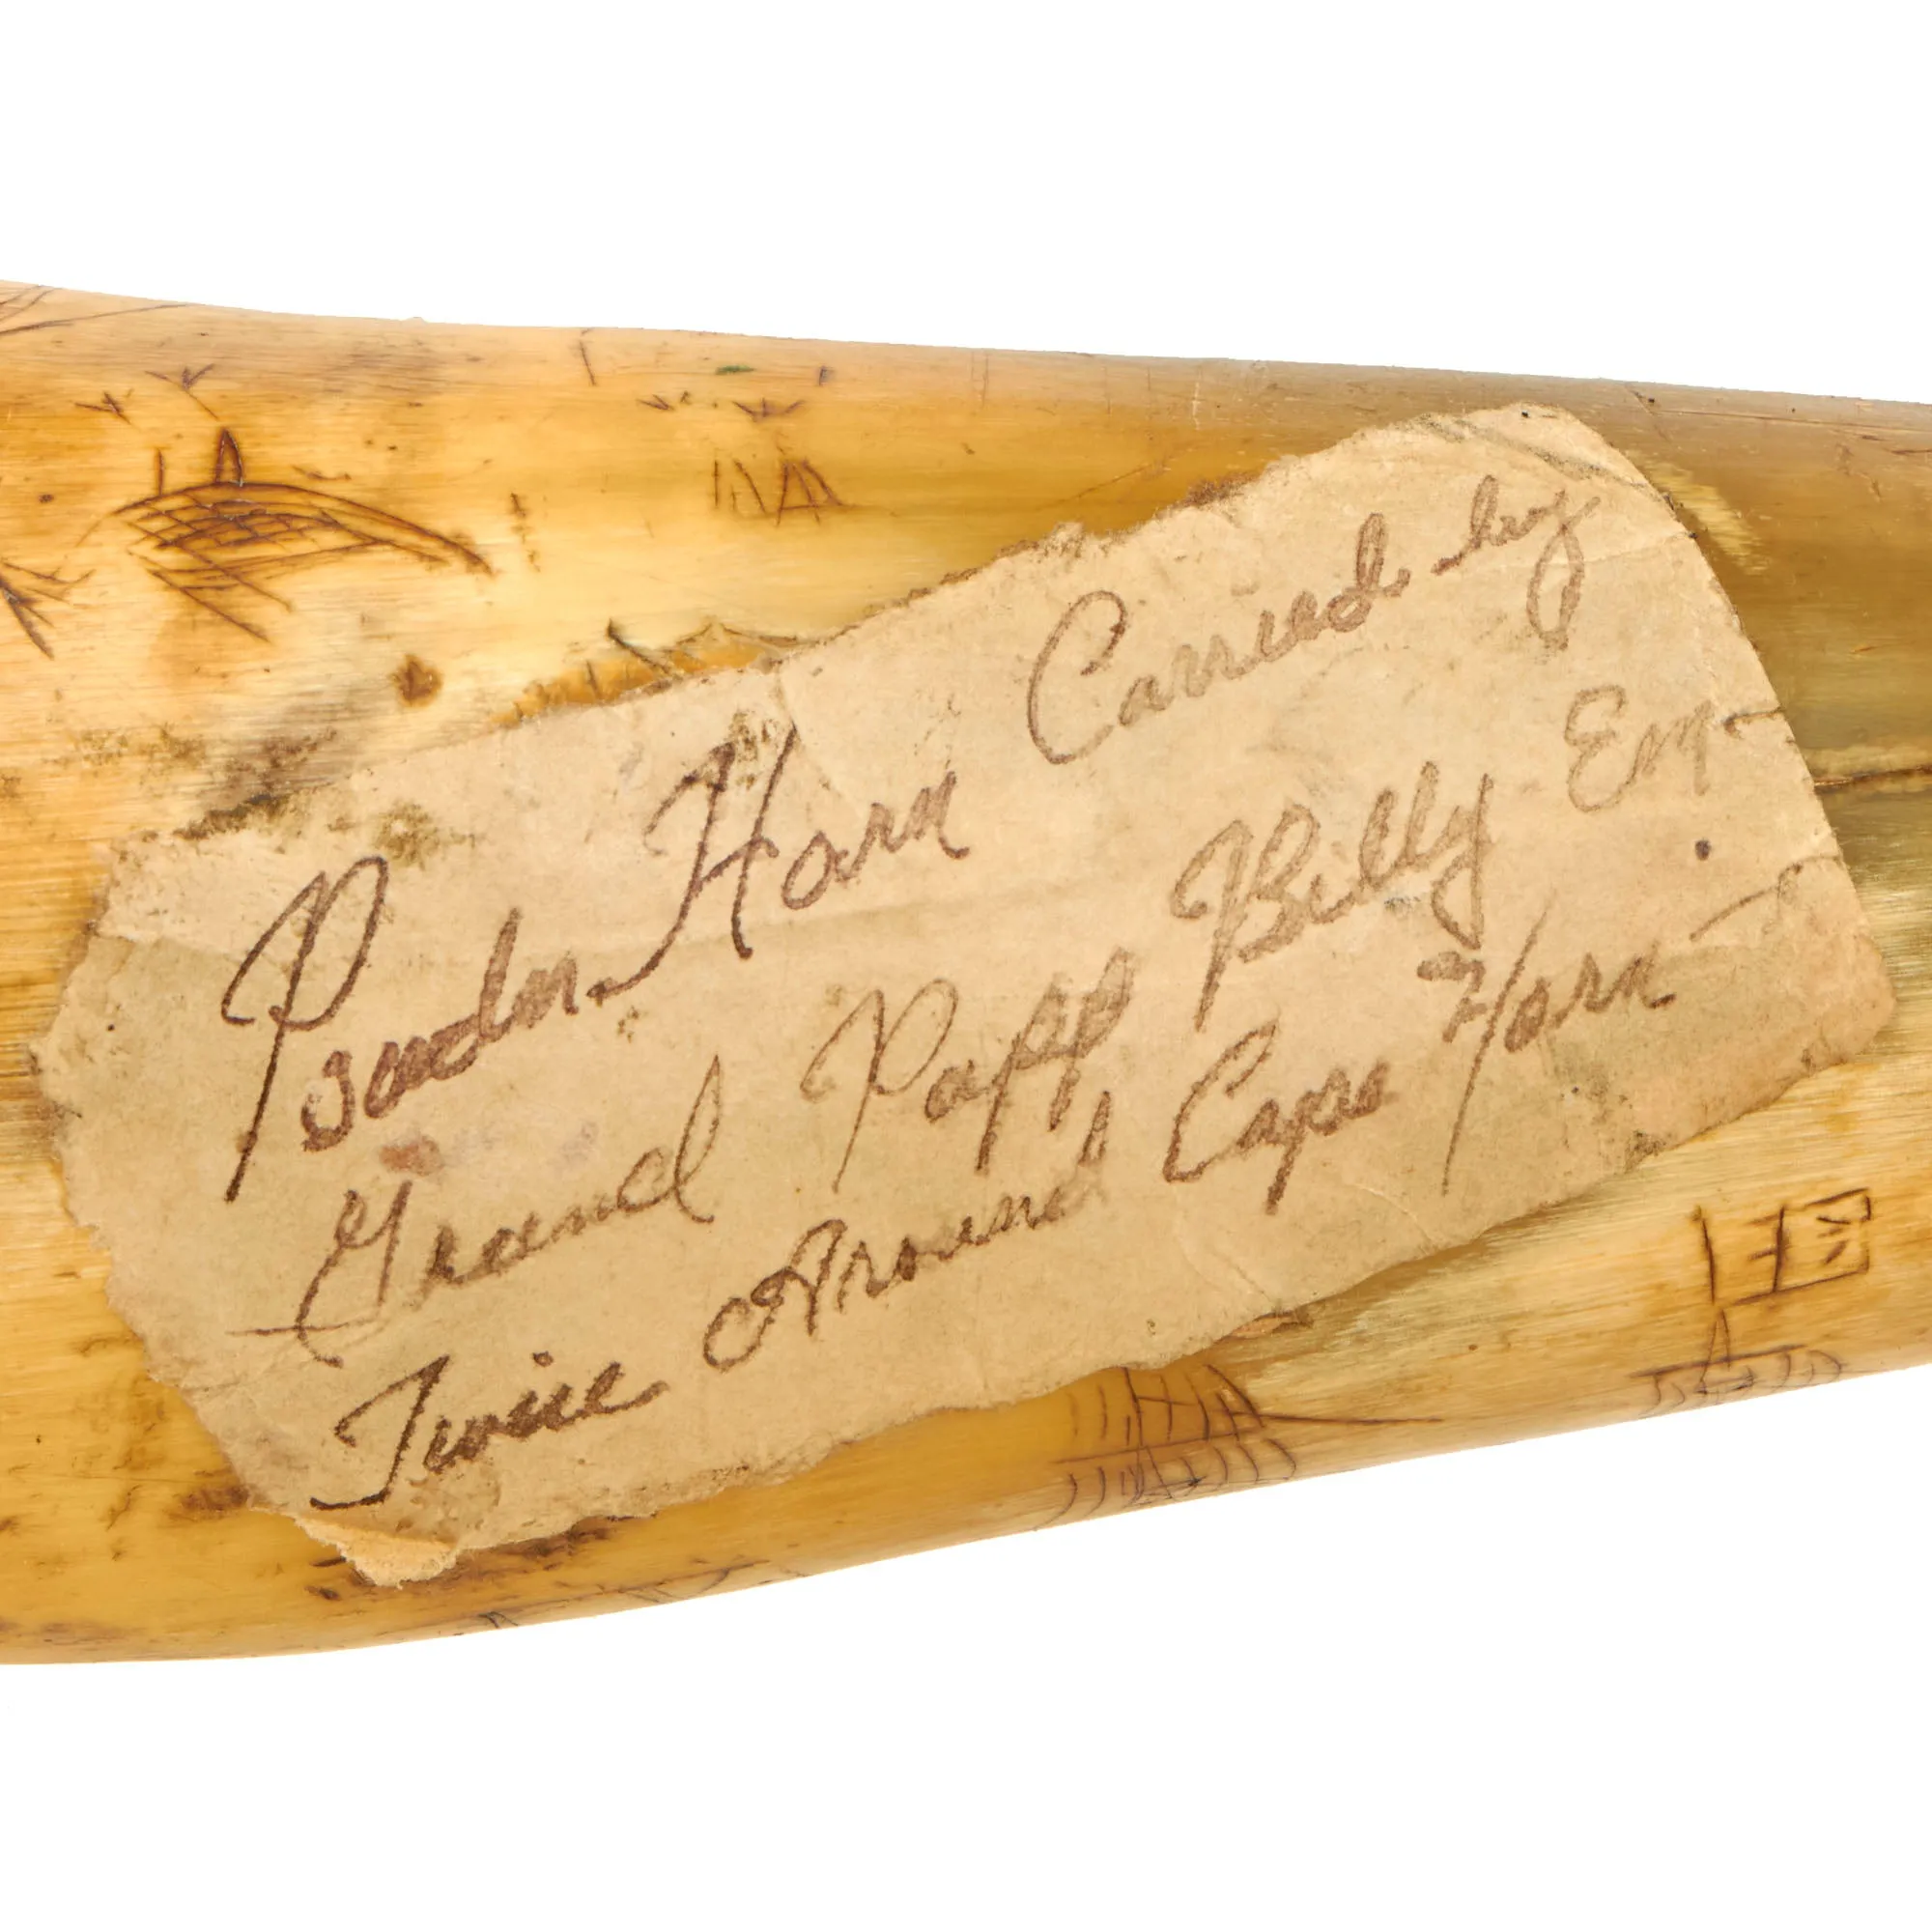 Powder Horn Carried by
Grand Papp Billy Em-
Twice Around Cape Horn -